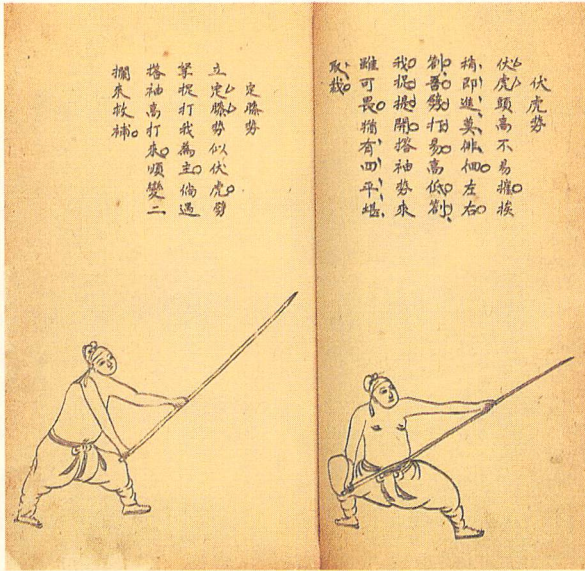 伏虎勢
伏虎頭高不易摧挨
稍即進莫徘徊左右
劄吾發打易高低劄
我捉提開搭袖勢來
雖可畏猶有四平堪
取裁
定膝勢
立定膝勢似伏虎劈
拏捉打我為主倘遇
搭袖高打來順變二
攔來救補